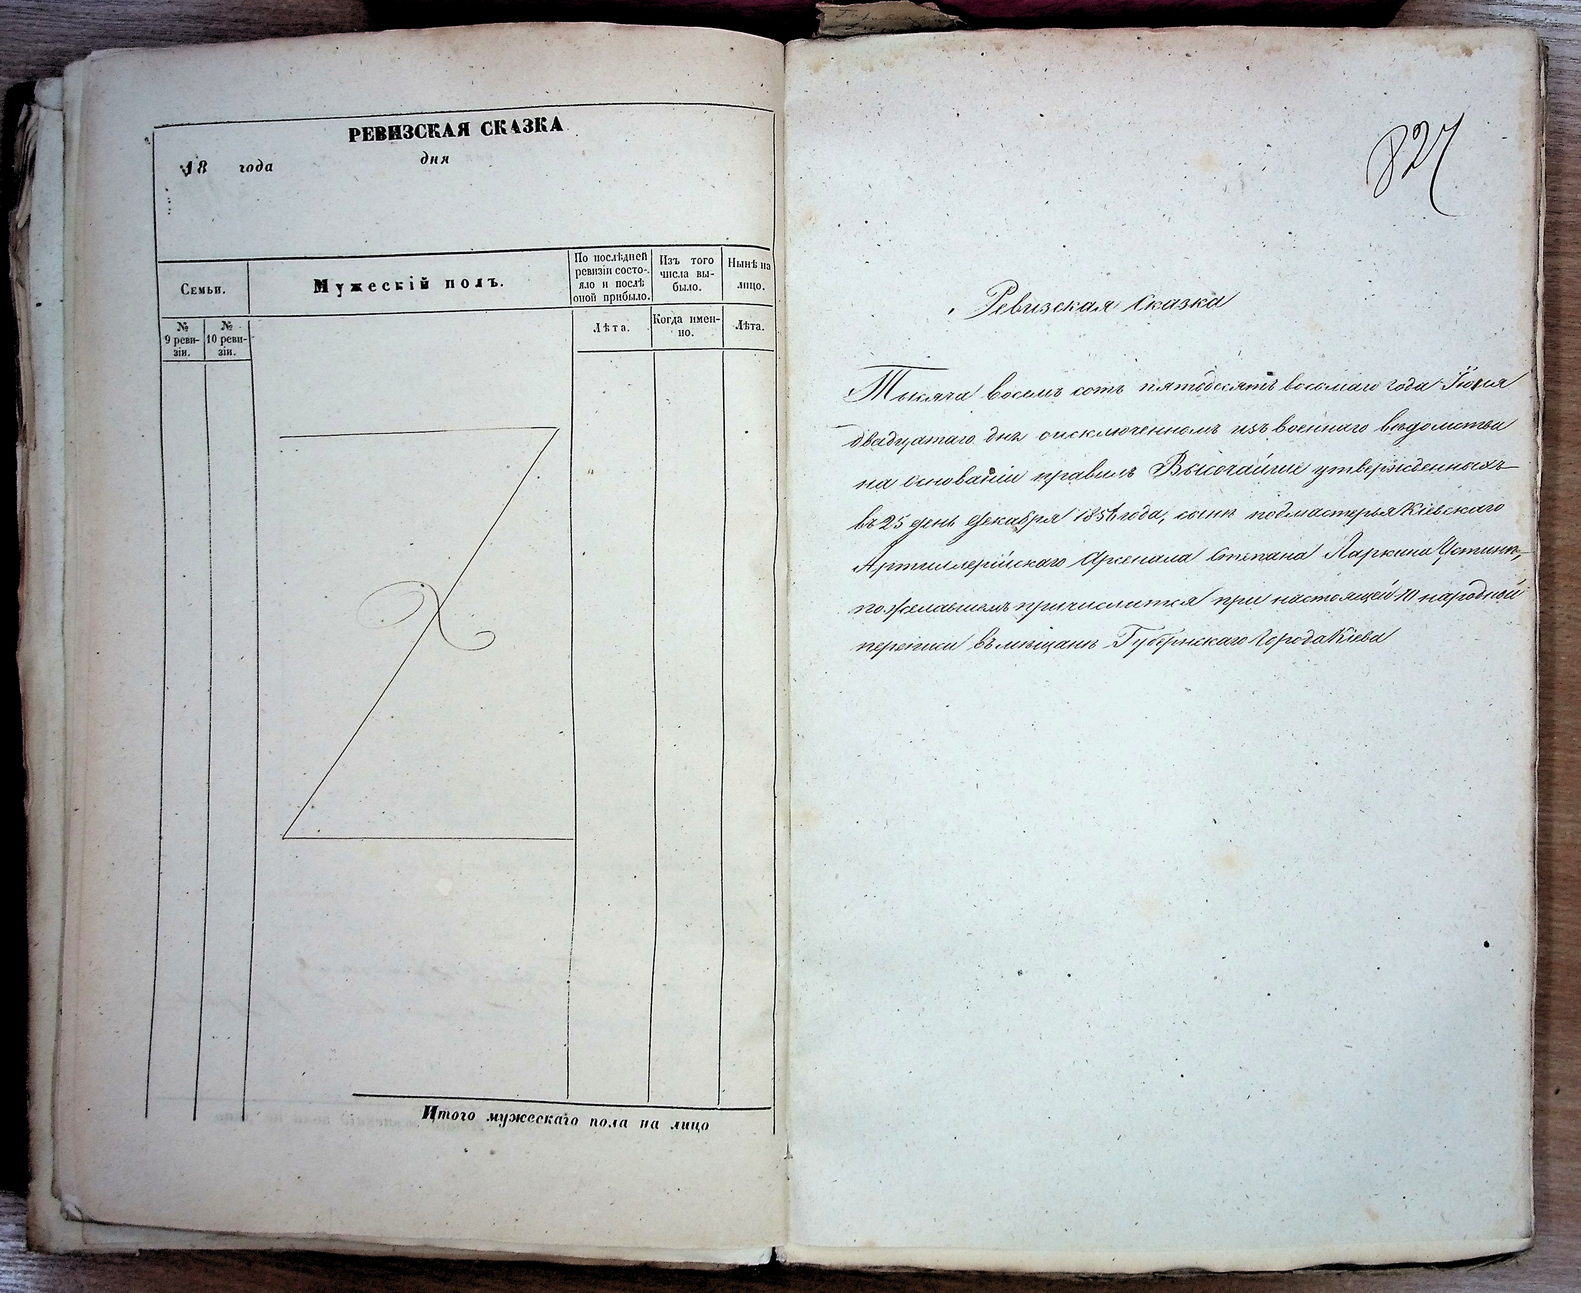 РЕВИЗСКАЯ СКАЗКА
18 года дня
Семьи.
Мужескій полъ.
По послѣдней ревизіи состо-
яло и послѣ
оной прибыло.
Изъ того
числа вы-
было.
Нынѣ на
лицо.
№
9 реви-
зіи.
№
10 реви-
зіи.
Лѣта.
Когда имен-
но.
Лѣта.
Итого мужескаго пола на лицо
827
Ревизская Сказка
Тысяча восемь сотъ пятьдесятъ восьмаго года Іюля
двадцатаго дня о исключенномъ изъ военнаго вѣдомства
на основаніи правилъ Высочайше утвержденныхъ
въ 25 день Декабря 1856 года, сынѣ подмастерья Кіевскаго
Артиллерійскаго Арсенала Степана Ларкина Устинѣ,
пожелавшемъ причислится при настоящей 10 народной
переписи въ мѣщане Губернскаго Города Кіева